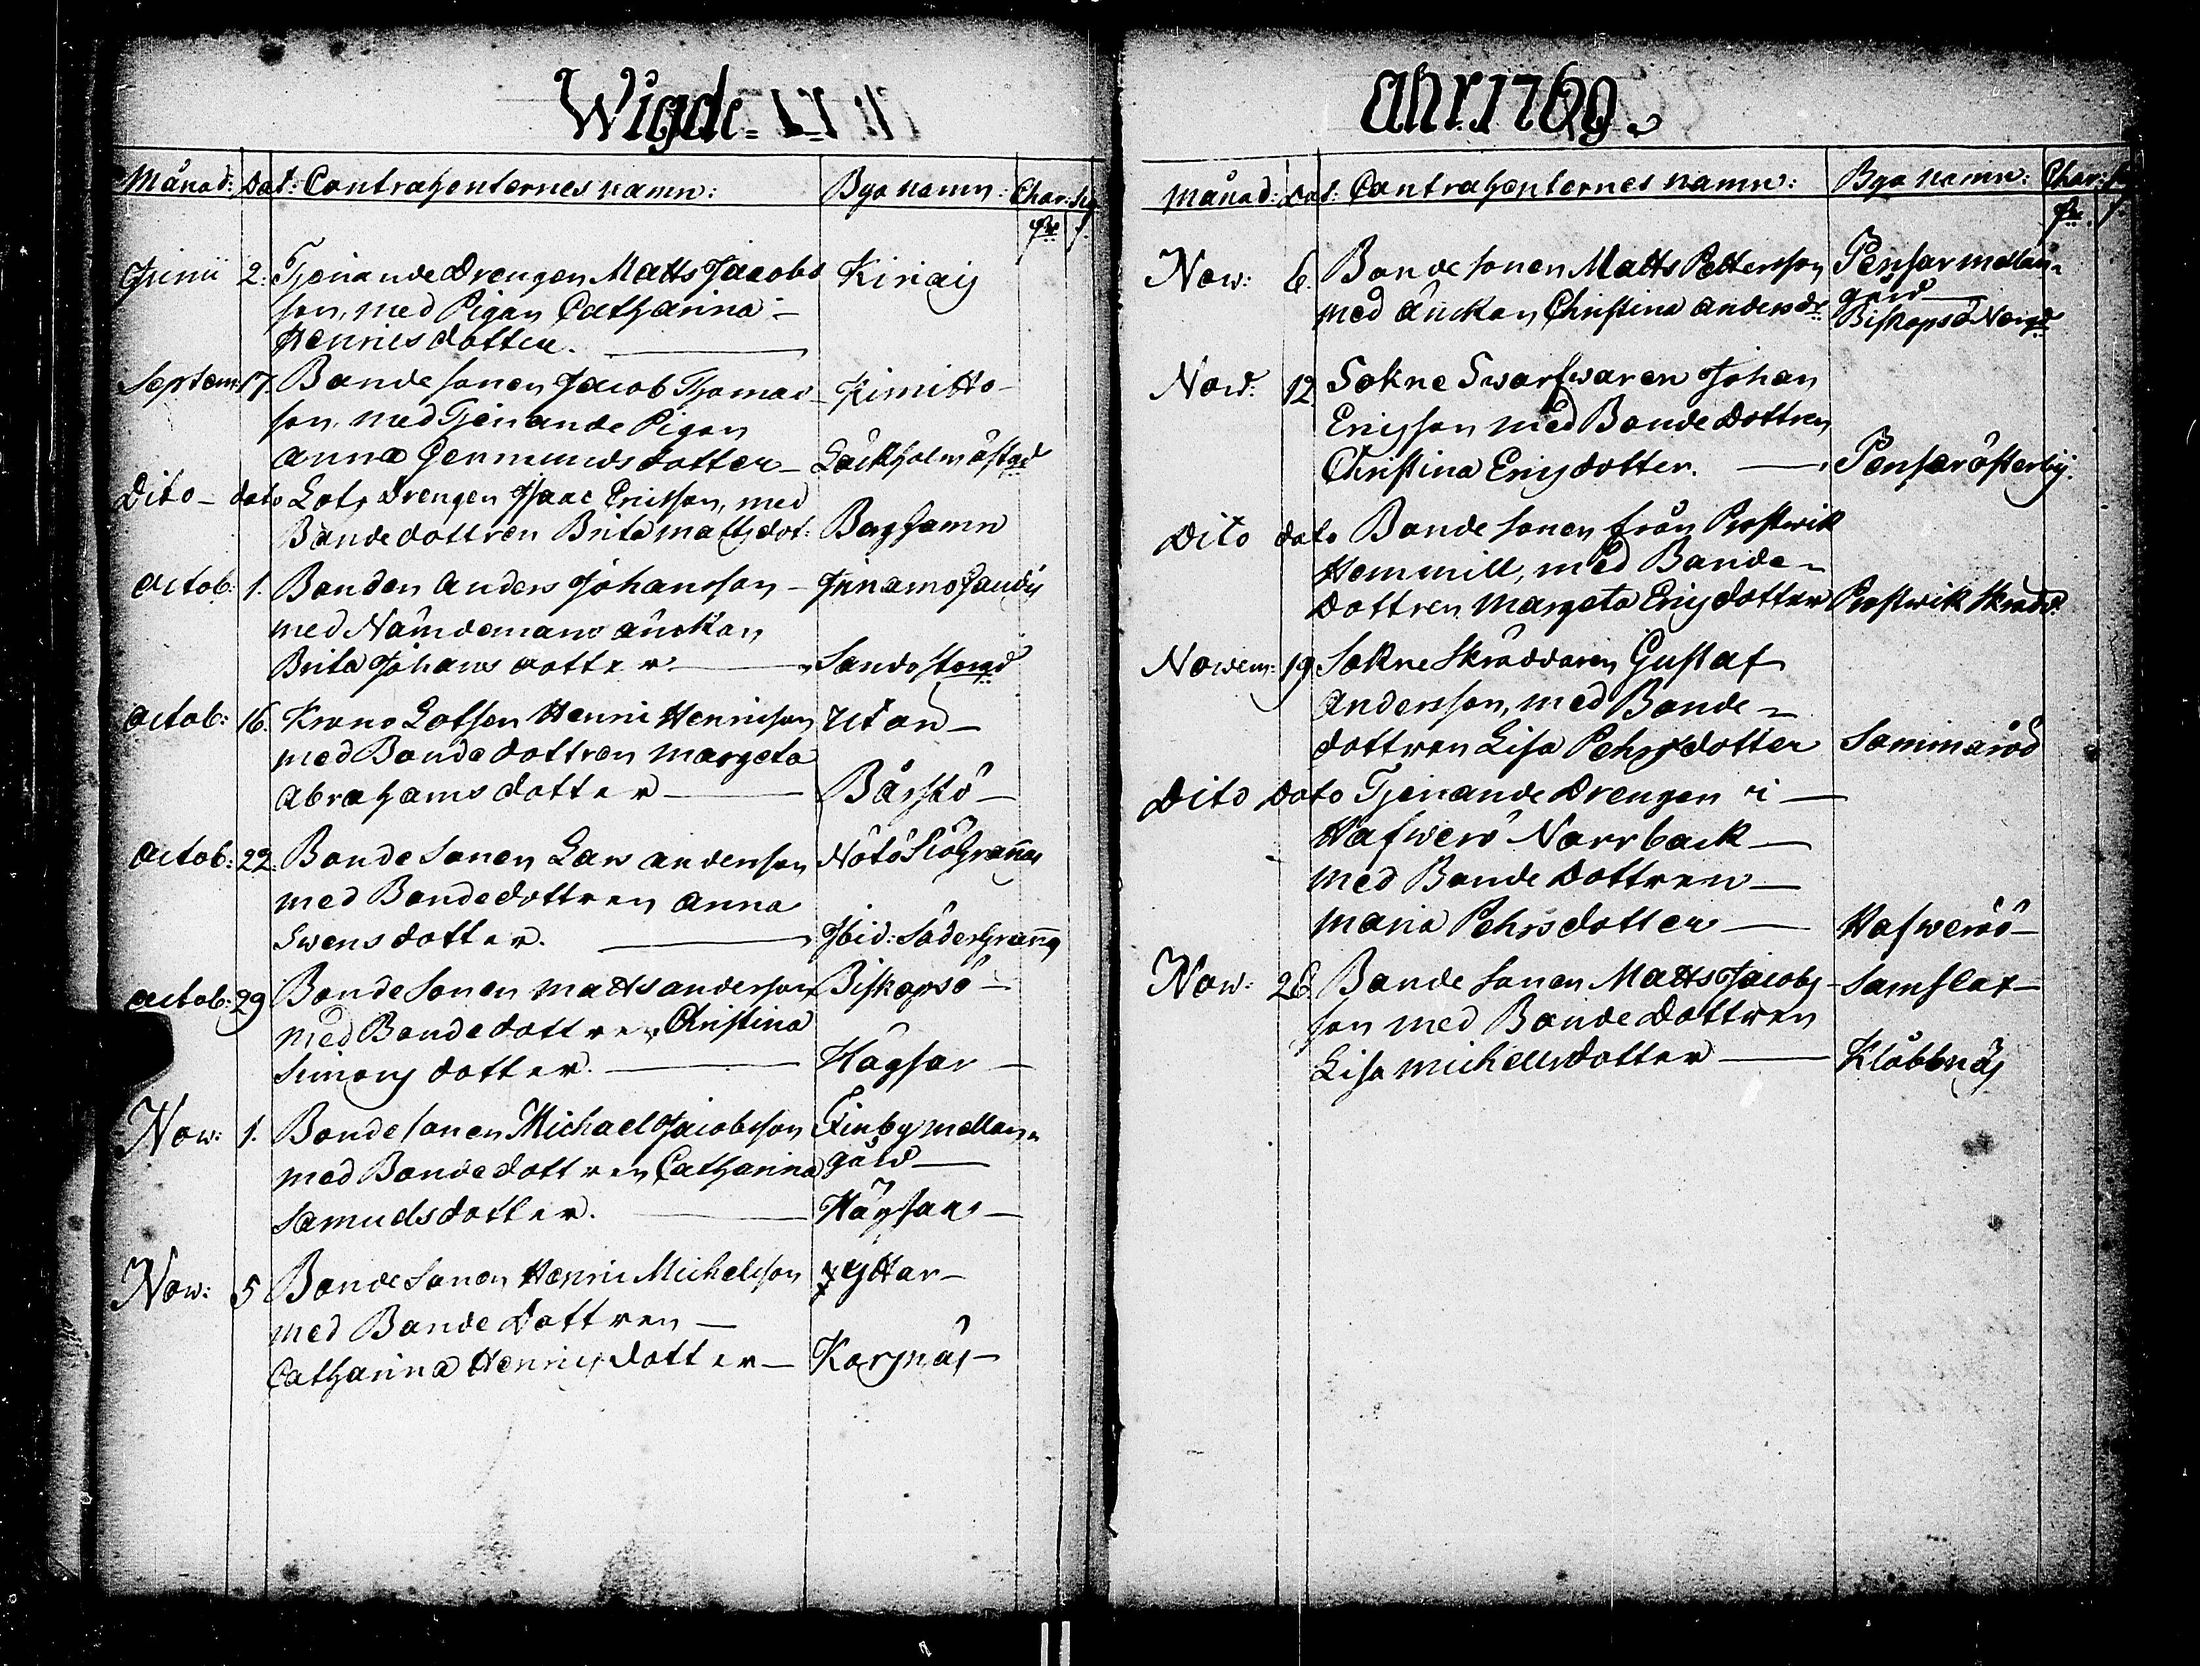 Wigde
Månad: Dat: Contrahenternes namn: Bya namn: Char: Sig
Junii 2. Tjenande Drengen Matts Jacobs Kiriais
son, med Pigan Catharina
Henricsdotter.
Septem: 17. Bonde sonen Jacob Thomas Kimitto
son, med Tjenande Pigan
Anna Germundsdotter Löckholm östgd
Dito dato Lots Drengen Isaac Ericsson, med
Bonde dottren Brita Mattsdot: Berghamn
Octob: 1. Bonden Anders Johansson
med Nämdemans änckan
Brita Johans dotter Sandö storgd
Octob: 16. Krono Lotsen Henric Henricsson Utön
med Bonde dottren Margeta
Abrahams dotter Bärskö
Octob: 22. Bonde Sonen Lars Andersson Nötö Siögrannas
med Bondedottren Anna
Swens dotter. Ibid: Södergranng
Octob: 29 Bonde Sonen Matts Andersson Biskopsö
med Bondedottren Christina
Simons dotter. Hogsar
Now: 1. Bonde sonen Michael Jacobsson Finby mellan
med Bondedottren Catharina gård
Samuelsdotter. Högsar
Now: 5 Bonde Sonen Henric Michelsson Yttar
med Bonde Dottren
Catharina Henricsdotter Korsnäs
Ahr 1769.
Månad: Dat: Contrahenternes namn: Bya namn: Char:
Now: 6. Bonde sonen Matts Pettersson Pensar mellan
med änckan Christina Andersdr gård
Biskopsö Norgd
Now: 12. Sokne Swarfwaren Johan
Ericsson med Bonde Dottren
Christina Ericsdotter. Pensar österby:
Dito dato Bonde sonen från Prostwik
Hemmill, med Bonde
Dottren Margeta Ericsdotter Prostwik Skrädd:
Nowem: 19 Sokne Skräddaren Gustaf
Andersson, med Bonde
dottren Lisa Pehrsdotter Sommarö
Dito Dato Tjenande Drengen i
Hafwerö Norrback
med Bonde Dottren
Maria Pehrsdotter Hafwerö
Now: 26. Bonde Sonen Matts Jacobs Samslax
son med Bonde Dottren
Lisa Michellsdotter Klobbnäs